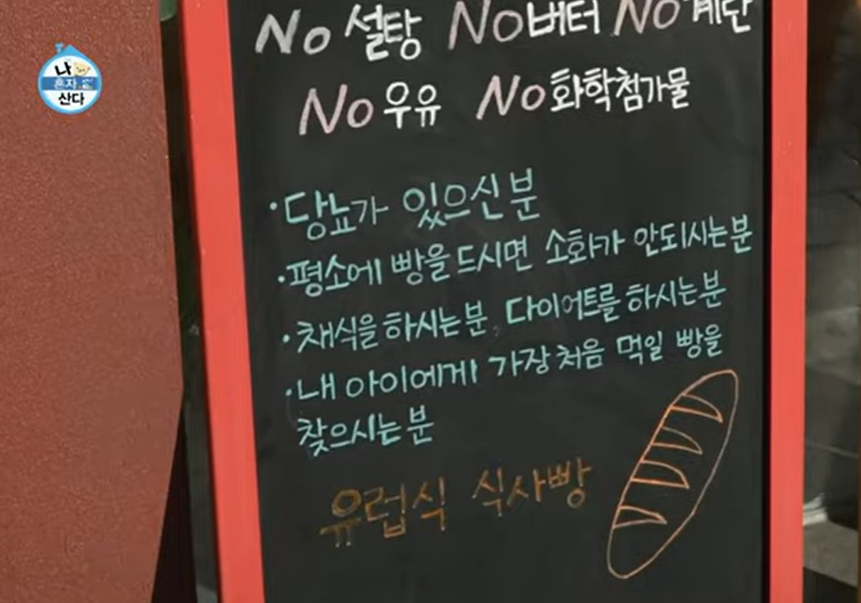 나
혼자
산다
No 설탕 No 버터 No 계란
No 우유 No 화학첨가물
·당뇨가 있으신분
·평소에 빵을 드시면 소화가 안되시는분
·채식을 하시는분, 다이어트를 하시는분
·내 아이에게 가장 처음 먹일 빵을
찾으시는분
유럽식 식사빵